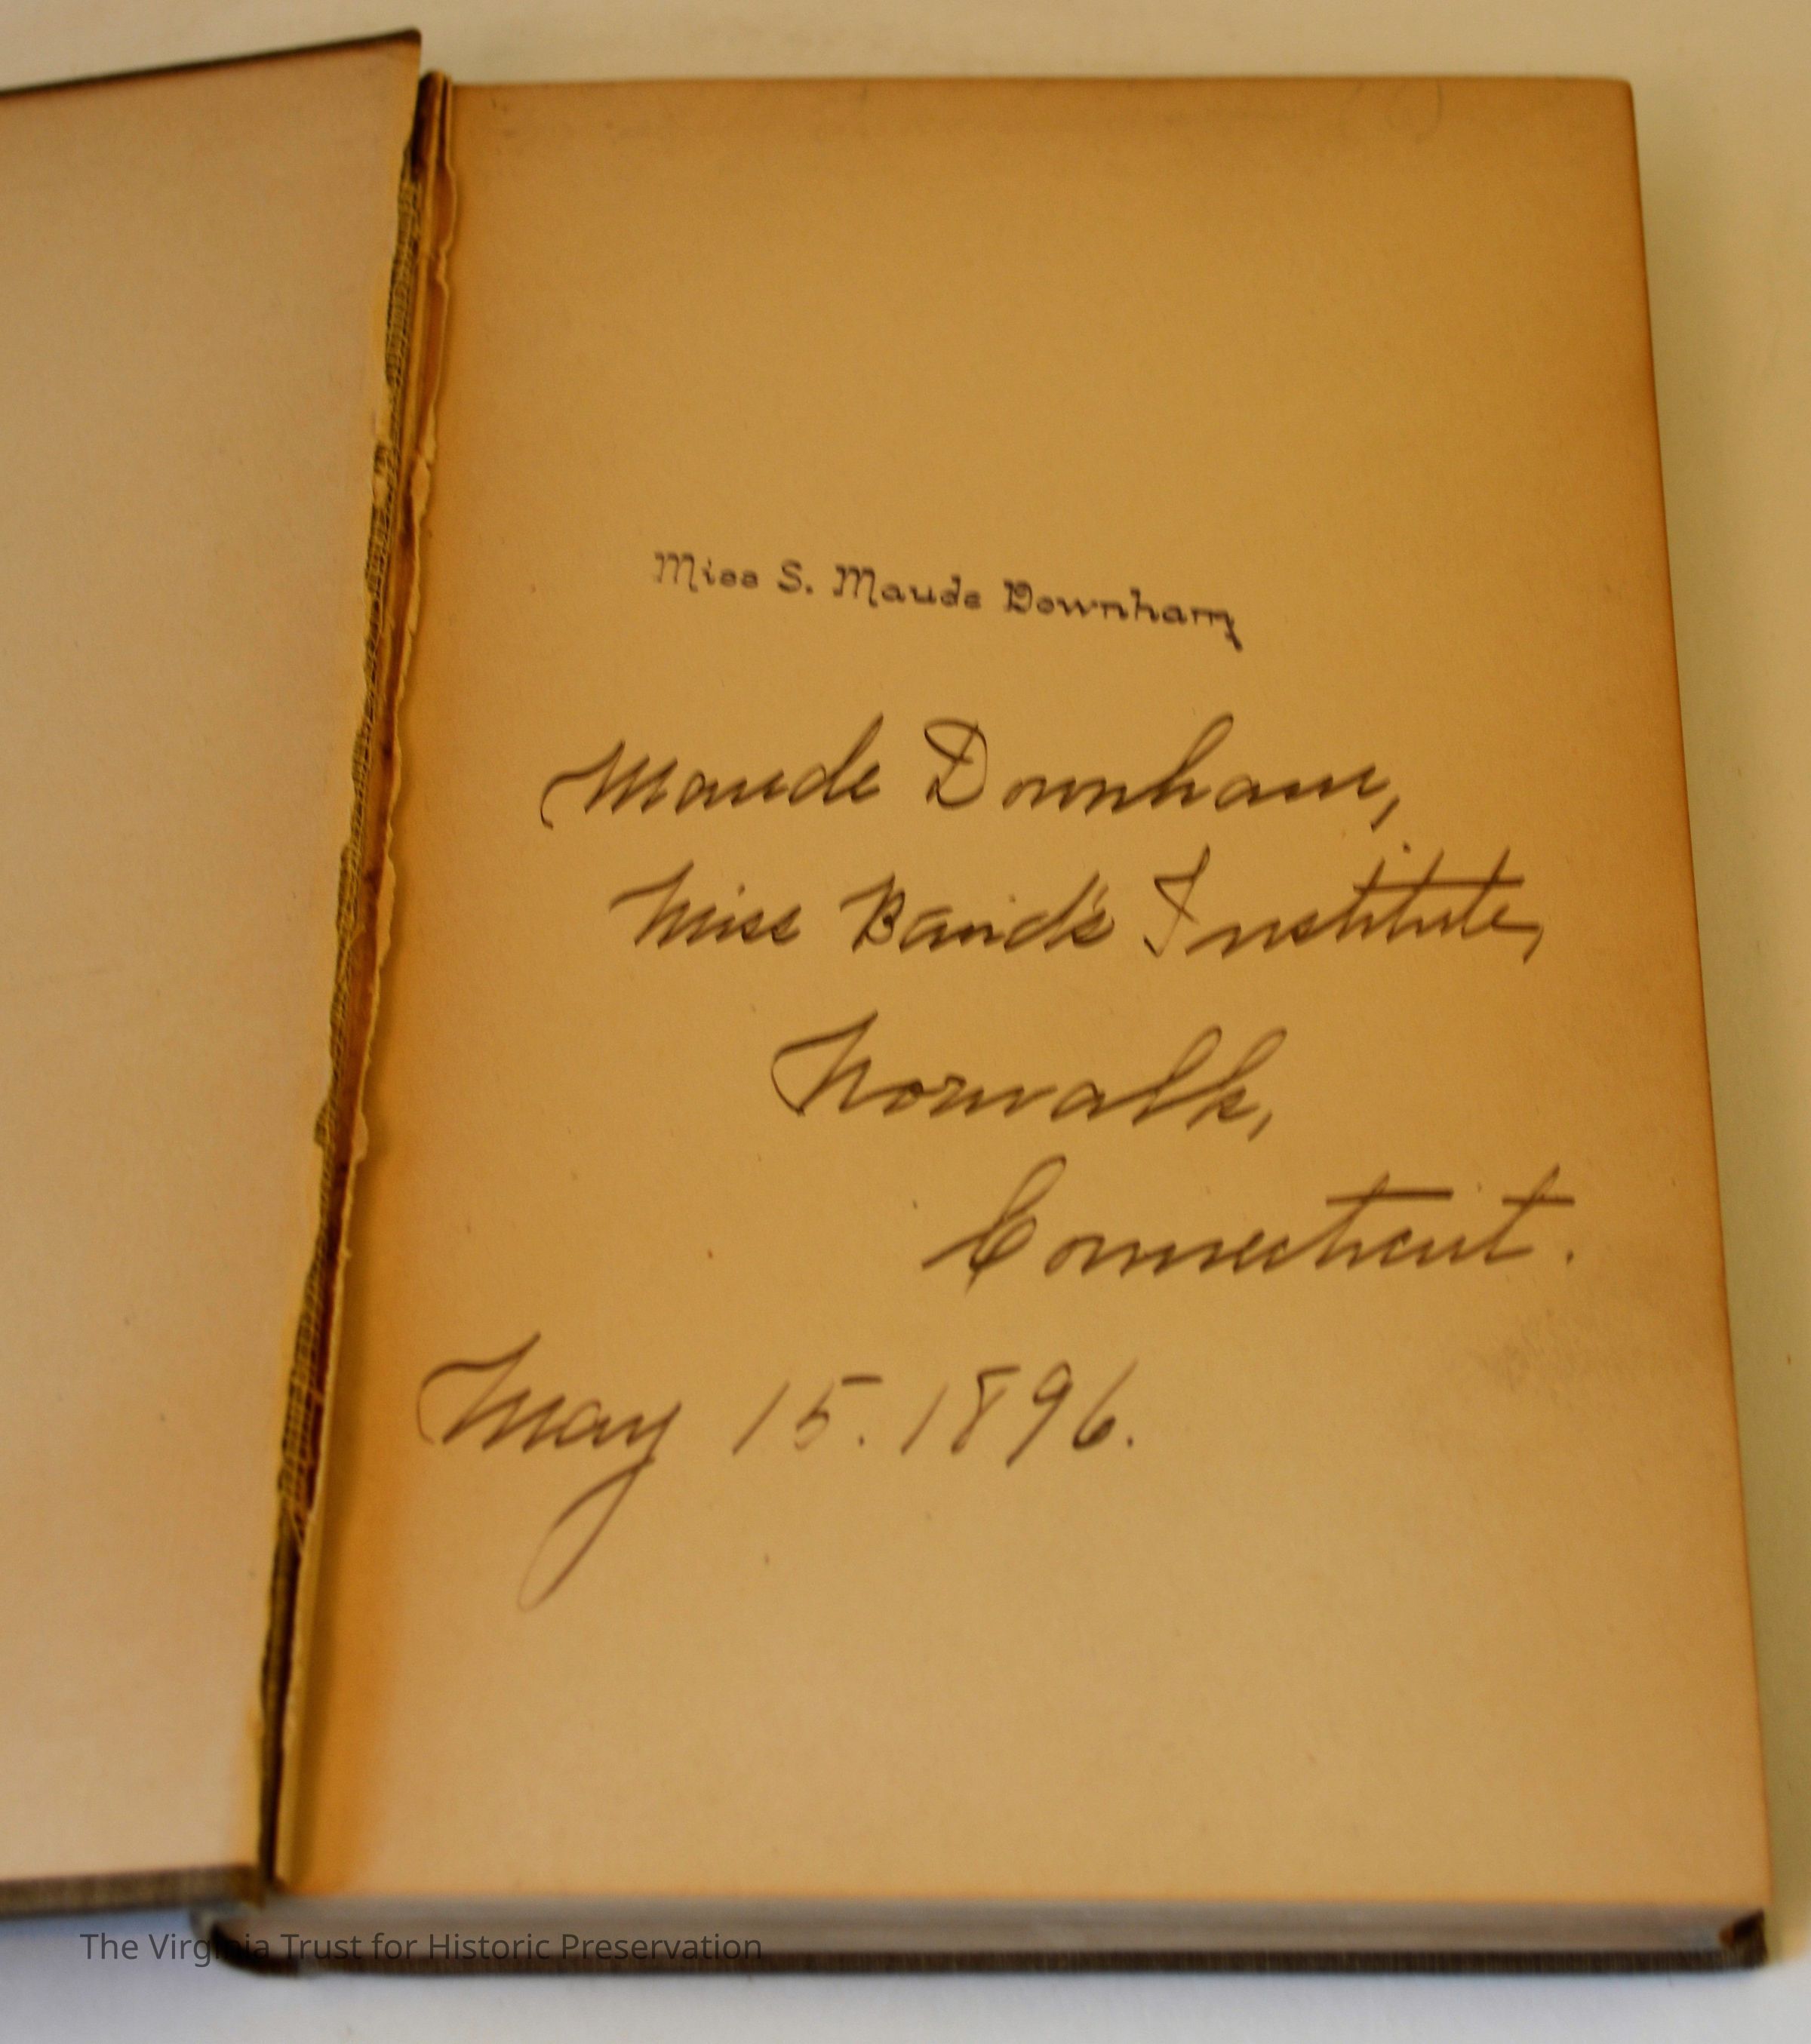 Miss S. Maude Downham
Maude Downham,
Miss Baird's Institute,
Norwalk,
Connecticut.
May 15. 1896.
The Virginia Trust for Historic Preservation